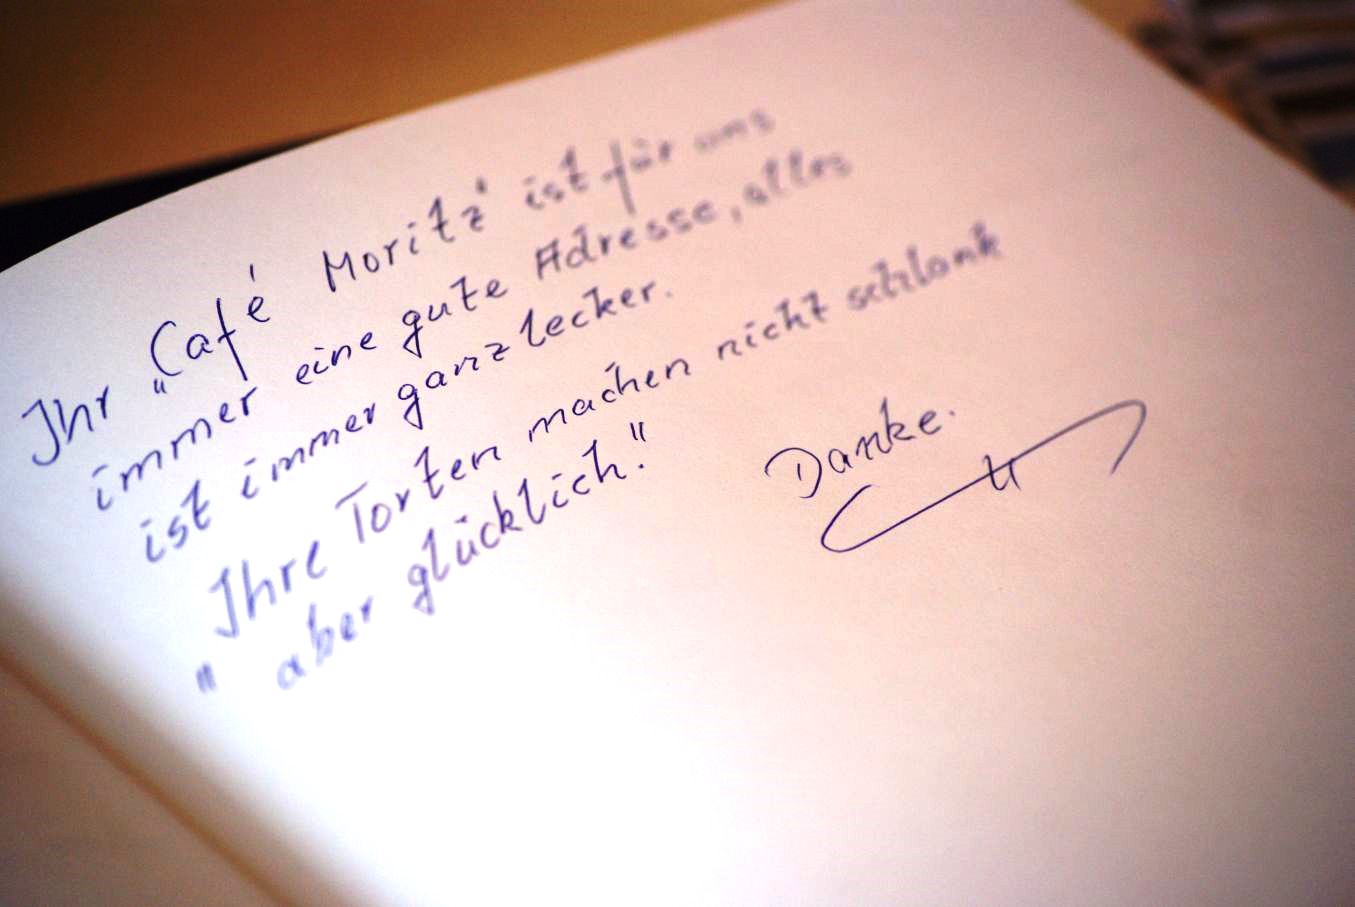 Ihr „Café Moritz" ist für uns
immer eine gute Adresse, alles
ist immer ganz lecker.
„Ihre Torten machen nicht schlank
aber glücklich."
Danke.